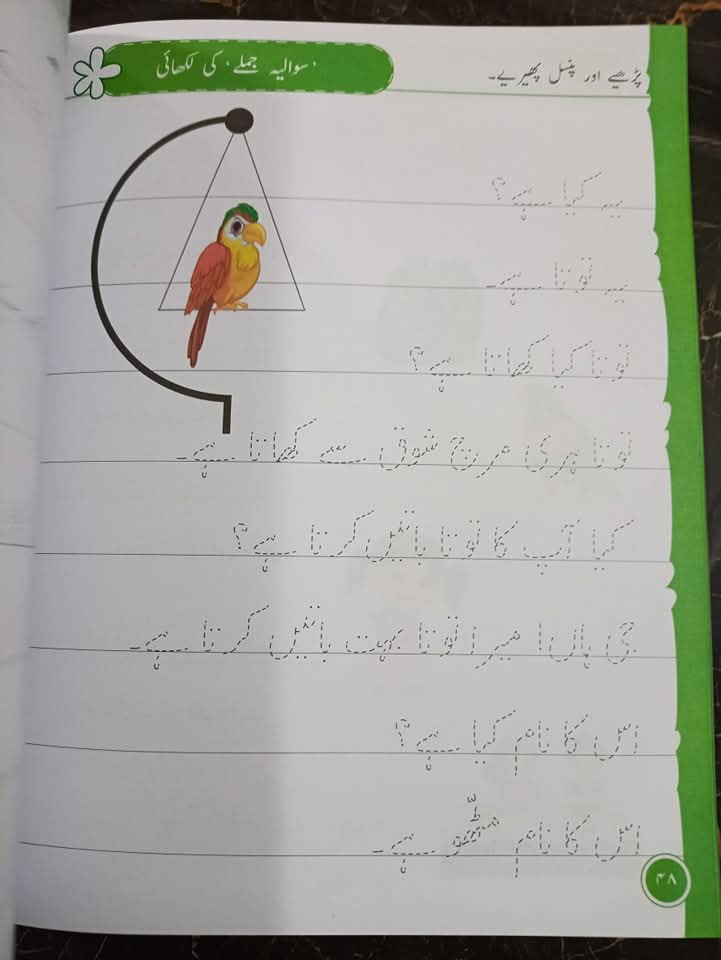 پڑھیے اور پنسل پھیریے۔
'سوالیہ جملے' کی لکھائی
یہ کیا ہے؟
یہ توتا ہے۔
توتا کیا کھاتا ہے؟
توتا ہری مرچ شوق سے کھاتا ہے۔
کیا آپ کا توتا باتیں کرتا ہے؟
جی ہاں! میرا توتا بہت باتیں کرتا ہے۔
اس کا نام کیا ہے؟
اس کا نام مٹھو ہے۔
۴۸